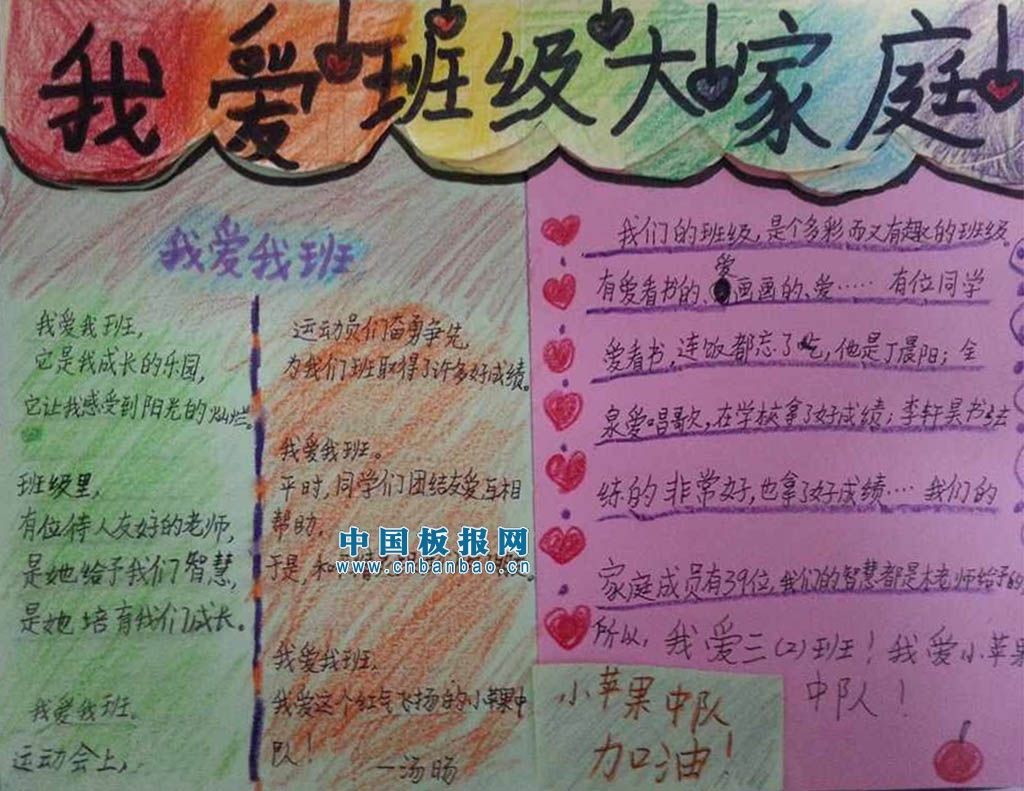 我爱班级大家庭
我爱我班
我爱我班,
它是我成长的乐园,
它让我感受到阳光的灿烂。
班级里,
有位待人友好的老师,
是她给予我们智慧,
是她培育我们成长。
我爱我班。
运动会上,
运动员们奋勇争先,
为我们班取得了许多好成绩。
我爱我班。
平时,同学们团结友爱互相
帮助,
于是,和
我爱我班,
我爱这个红气飞扬的小苹果中
队!
—汤旸
我们的班级,是个多彩而又有趣的班级。
有爱看书的、爱画画的、爱…… 有位同学
爱看书,连饭都忘了吃,他是丁晨阳;全
泉爱唱歌,在学校拿了好成绩;李轩昊书法
练的非常好,也拿了好成绩… 我们的
家庭成员有39位,我们的智慧都是木老师给予的
所以,我爱三(2)班!我爱小苹果
中队!
小苹果中队
加油!
中国板报网
www.cnbanbao.cn